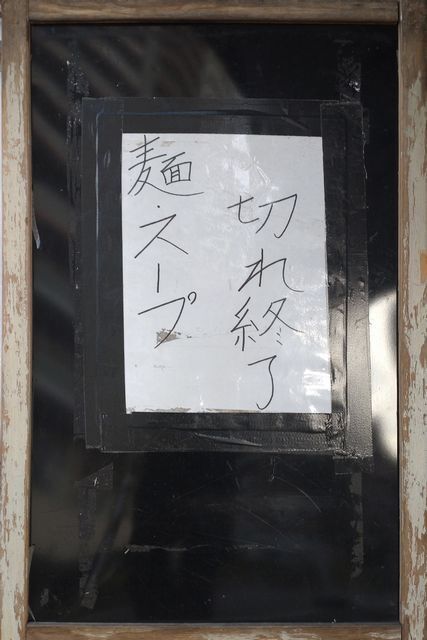 麺・スープ
切れ終了